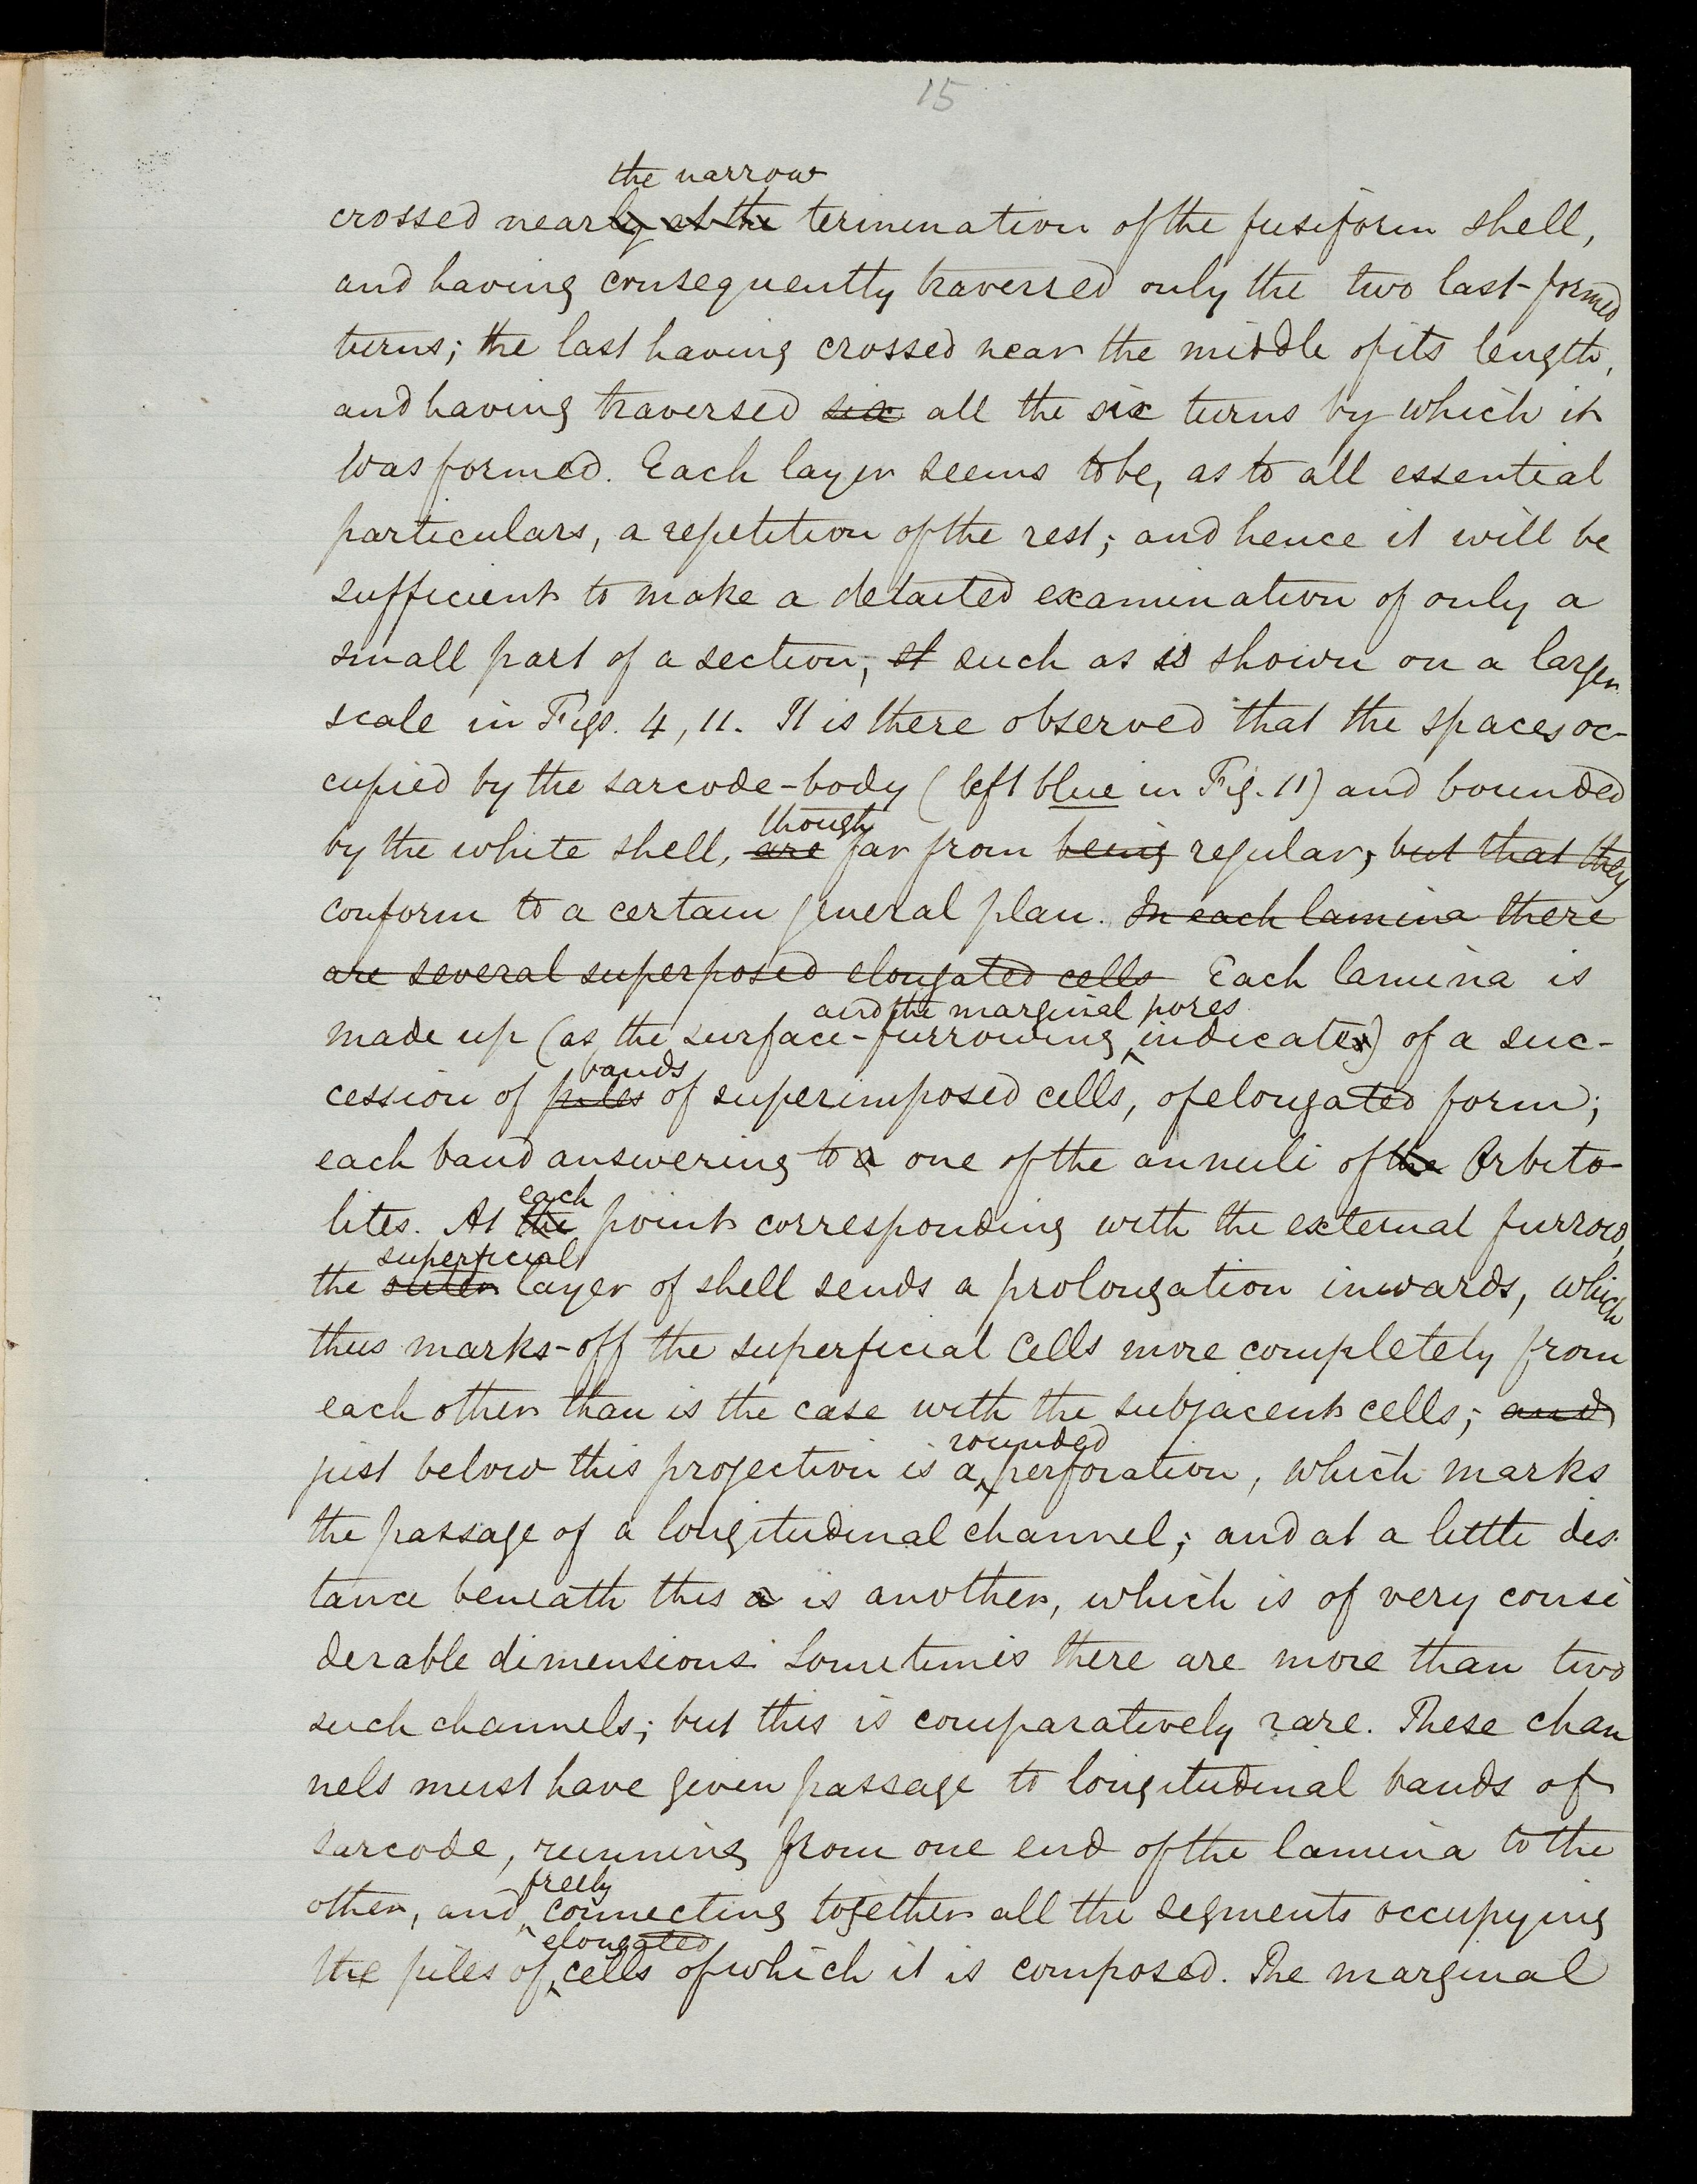 15
the narrow
crossed nearly at the termination of the fusiform shell,
and having consequently traversed only the two last-formed
turns; the last having crossed near the middle of its length,
and having traversed six all the six turns by which it
was formed. Each layer seems to be, as to all essential
particulars, a repetition of the rest; and hence it will be
sufficient to make a detailed examination of only a
small part of a section, st such as is shown on a larger
scale in Figs. 4, 11. It is there observed that the spaces oc-
cupied by the sarcode-body (left blue in Fig. 11) and bounded
though
by the white shell, are far from being regular, but that they
conform to a certain general plan. In each lamina there
are several superposed elongated cells Each lamina is
and the marginal pores
made up (as the surface-furrowing indicates) of a suc-
bands
cession of piles of superimposed cells, of elongated form;
each band answering to a one of the annuli of the Orbito-
each
lites. At the point corresponding with the external furrow,
superficial
the outer layer of shell sends a prolongation inwards, which
thus marks-off the superficial cells more completely from
each other than is the case with the subjacent cells; and
rounded
just below this projection is a perforation, which marks
the passage of a longitudinal channel; and at a little dis-
tance beneath this a is another, which is of very consi
derable dimensions. Sometimes there are more than two
such channels; but this is comparatively rare. These chan
nels must have given passage to longitudinal bands of
sarcode, running from one end of the lamina to the
freely
other, and connecting together all the segments occupying
elongated
the piles of cells of which it is composed. The marginal